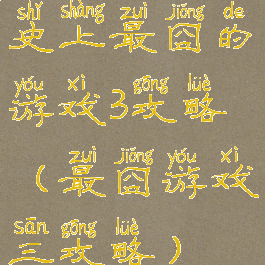 shǐ shàng zuì jiǒng de
史上最囧的
yóu xì gōng lüè
游戏3攻略
zuì jiǒng yóu xì
(最囧游戏
sān gōng lüè
三攻略)